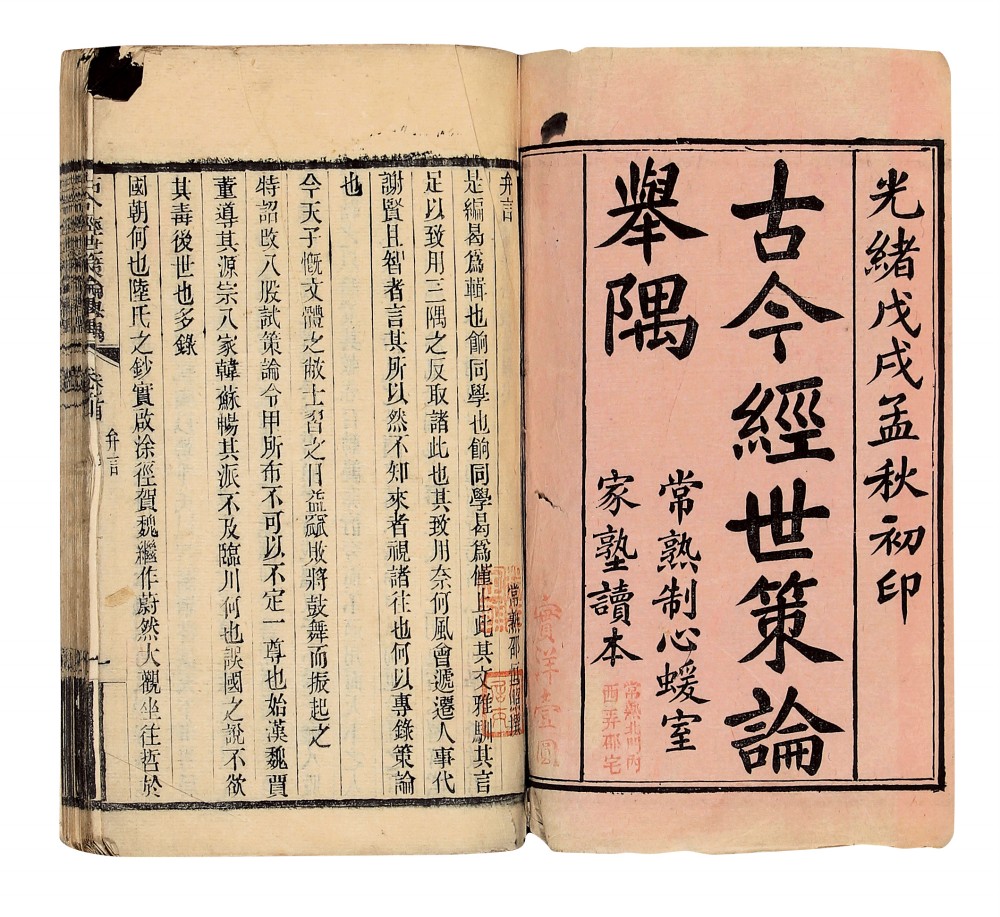 光緒戊戌孟秋初印
古今經世策論
舉隅
常熟制心蝯室
家塾讀本
常熟北門內
西弄邵宅
實洋壹圓
弁言
常熟邵
是編曷爲輯也餉同學也餉同學曷爲僅止此其文雅馴其言
足以致用三隅之反取諸此也其致用奈何風會遞遷人事代
謝賢且智者言其所以然不知來者視諸往也何以專錄策論
也
今天子慨文體之敝士習之日益窳敗將鼓舞而振起之
特詔改八股試策論令甲所布不可以不定一尊也始漢魏賈
董導其源宗八家韓蘇暢其派不及臨川何也誤國之說不欲
其毒後世也多錄
國朝何也陸氏之鈔實啟涂徑賀魏繼作蔚然大觀坐往哲於
古今經世策論舉隅
卷首
弁言